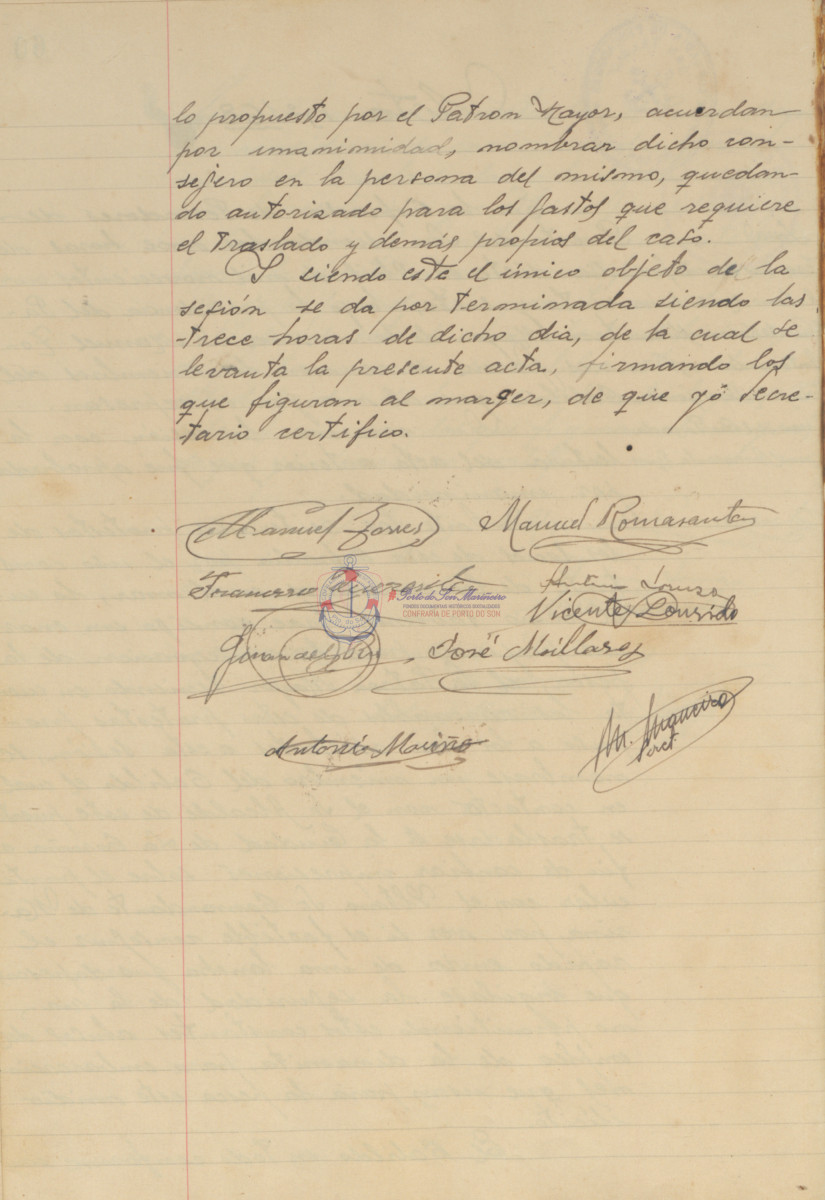 lo propuesto por el Patron Mayor, acuerdan
por unanimidad, nombrar dicho con-
sejero en la persona del mismo, quedan-
do autorizado para los gastos que requiere
el traslado y demás propios del caso.
Y siendo este el único objeto de la
sesión se da por terminada siendo las
trece horas de dicho dia, de la cual se
levanta la presente acta, firmando los
que figuran al marger, de que yó secre-
tario certifico.
Manuel Torres Manuel Romasanta
Francisco
Antonio
Porto do Son Mariñeiro
FONDOS DOCUMENTAIS HISTÓRICOS DIXITALIZADOS
CONFRARÍA DE PORTO DO SON
Vicente Lourido
José Maillary
Antonio Mariño
M.
Secret.